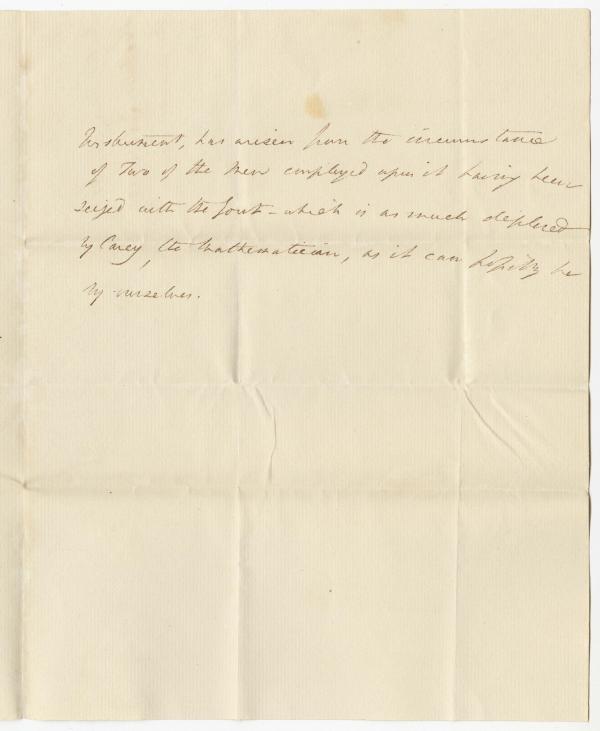 Instrument, has arisen from the circumstance
of Two of the Men employed upon it having been
seized with the Gout - which is as much deplored
by Carey, the Mathematician, as it can possibly be
by ourselves.